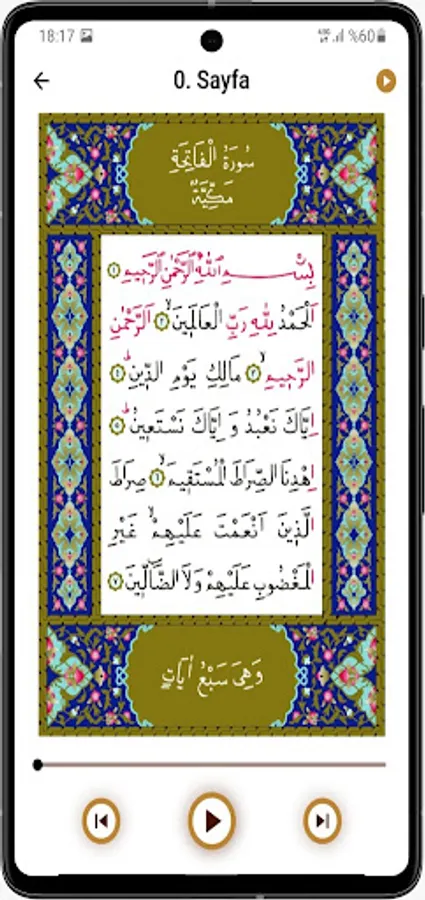 18:17 %60
0. Sayfa
سُورَةُ الْفَاتِحَةِ
مَكِّيَّةٌ
بِسْمِ اللّٰهِ الرَّحْمٰنِ الرَّحِيمِ ﴿١﴾
اَلْحَمْدُ لِلّٰهِ رَبِّ الْعَالَمِينَۙ ﴿٢﴾ اَلرَّحْمٰنِ
الرَّحِيمِۙ ﴿٣﴾ مَالِكِ يَوْمِ الدِّينِۜ ﴿٤﴾
اِيَّاكَ نَعْبُدُ وَ اِيَّاكَ نَسْتَعِينُۜ ﴿٥﴾
اِهْدِنَا الصِّرَاطَ الْمُسْتَقِيمَۙ ﴿٦﴾ صِرَاطَ
الَّذِينَ اَنْعَمْتَ عَلَيْهِمْۙ غَيْرِ
الْمَغْضُوبِ عَلَيْهِمْ وَلَا الضَّٓالِّينَ ﴿٧﴾
وَهِىَ سَبْعُ اٰيَاتٍ